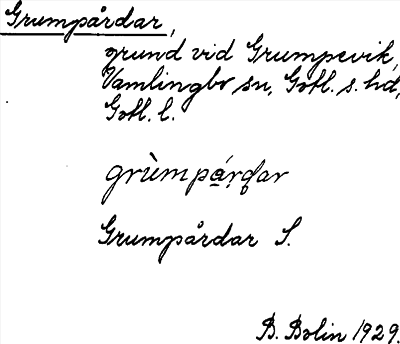 Grumpårdar,
grund vid Grumpevik,
Vamlingbo sn, Gotl. s. hd,
Gotl. l.
grùmpárdar
Grumpårdar S.
B. Bolin 1929.